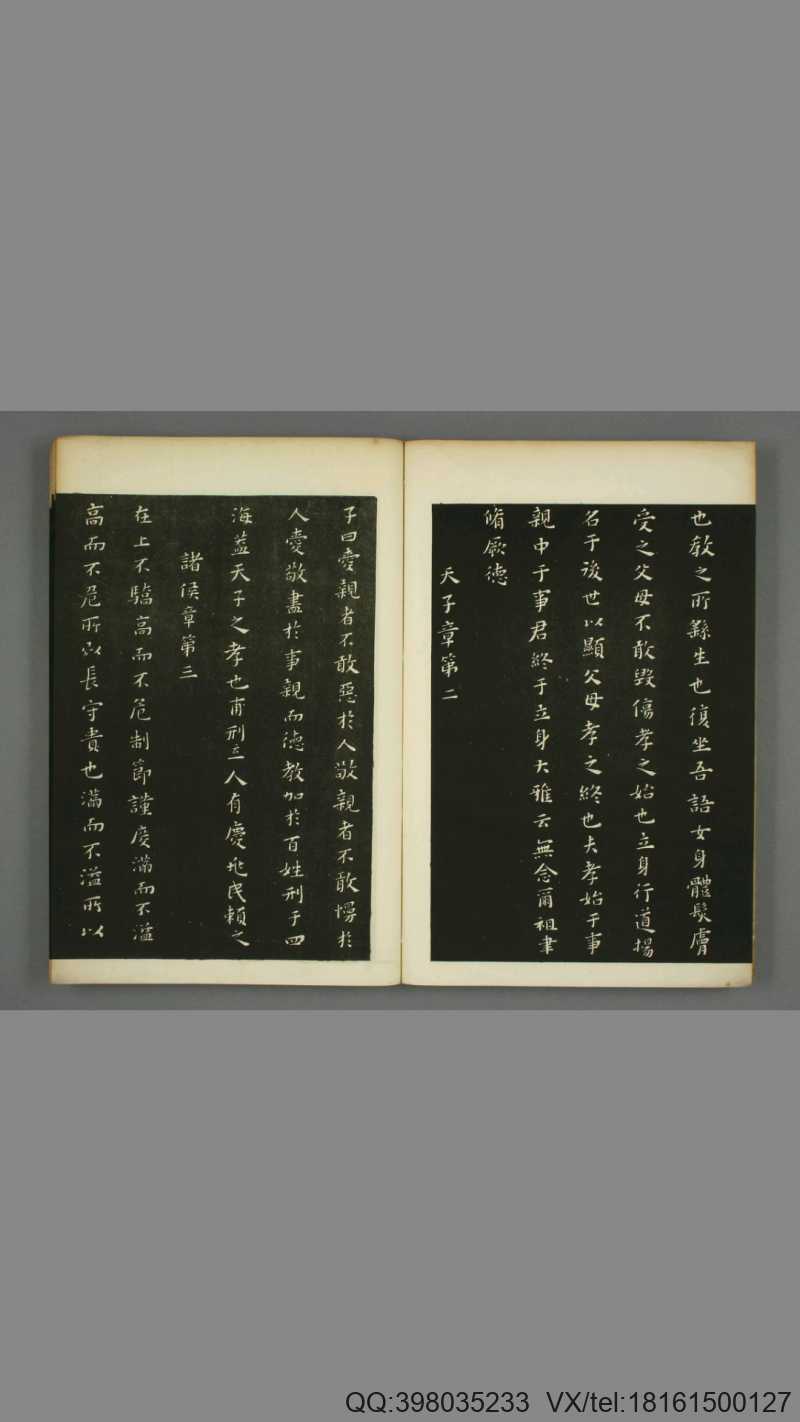 也教之所繇生也復坐吾語女身體髮膚
受之父母不敢毀傷孝之始也立身行道揚
名于後世以顯父母孝之終也夫孝始于事
親中于事君終于立身大雅云無念爾祖聿
脩厥德
天子章第二
子曰愛親者不敢惡於人敬親者不敢慢於
人愛敬盡於事親而德教加於百姓刑于四
海蓋天子之孝也甫刑云一人有慶兆民賴之
諸侯章第三
在上不驕高而不危制節謹度滿而不溢
高而不危所以長守貴也滿而不溢所以
QQ:398035233 VX/tel:18161500127